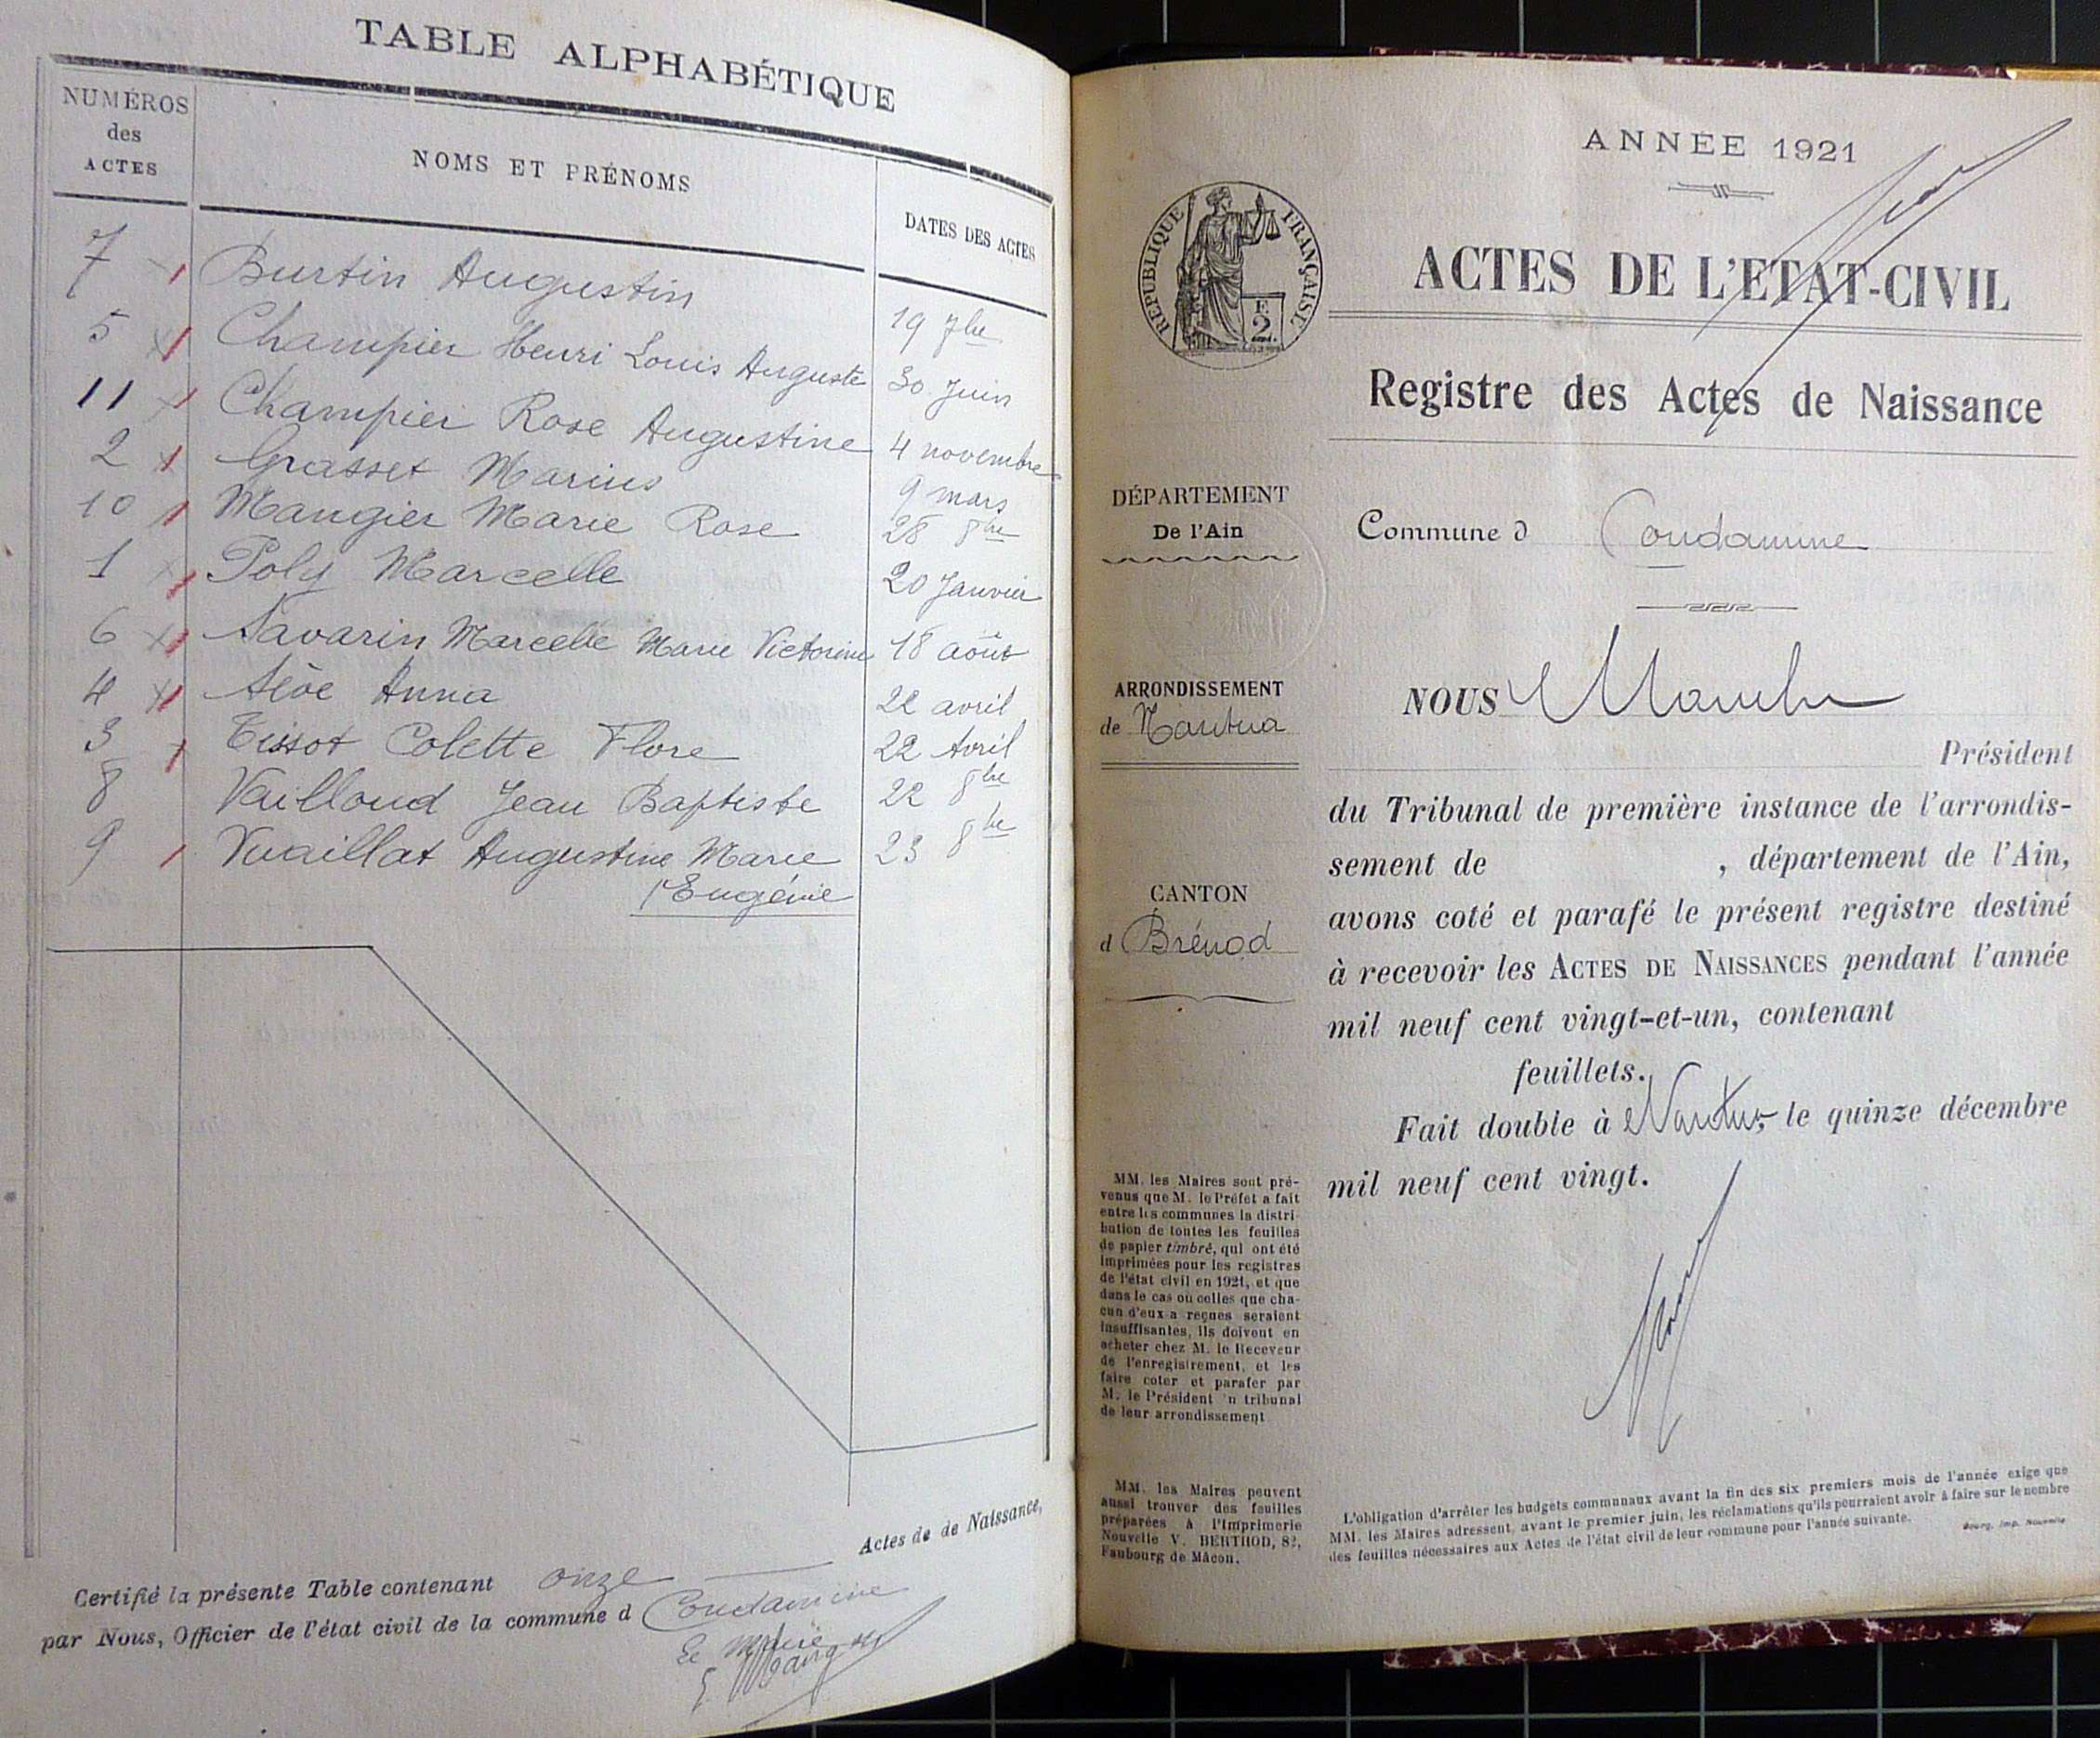 TABLE ALPHABÉTIQUE
NUMÉROS
des
ACTES
NOMS ET PRÉNOMS
DATES DES ACTES
7 Burtin Augustin 19 7bre
5 Champier Henri Louis Auguste 30 Juin
11 Champier Rose Augustine 4 novembre
2 Grasset Marius 9 mars
10 Mangier Marie Rose 28 8bre
1 Poly Marcelle 20 Janvier
6 Savarin Marcelle Marie Victorine 18 août
4 Sève Anna 22 avril
3 Tissot Colette Flore 22 Avril
8 Vailloud Jean Baptiste 22 8bre
9 Vuaillat Augustine Marie 23 8bre
Eugénie
Actes de de Naissance,
Certifié la présente Table contenant onze
par Nous, Officier de l'état civil de la commune d Condamine
Le Maire
ANNÉE 1921
RÉPUBLIQUE FRANÇAISE
2
ACTES DE L'ETAT-CIVIL
Registre des Actes de Naissance
DÉPARTEMENT
De l'Ain
Commune d Condamine
ARRONDISSEMENT
de Nantua
NOUS
Président
du Tribunal de première instance de l'arrondis-
sement de , département de l'Ain,
avons coté et parafé le présent registre destiné
à recevoir les ACTES DE NAISSANCES pendant l'année
mil neuf cent vingt-et-un, contenant
feuillets.
Fait double à Nantua, le quinze décembre
mil neuf cent vingt.
CANTON
d Brénod
MM. les Maires sont pré-
venus que M. le Préfet a fait
entre les communes la distri-
bution de toutes les feuilles
de papier timbré, qui ont été
imprimées pour les registres
de l'état civil en 1921, et que
dans le cas où celles que cha-
cun d'eux a reçues seraient
insuffisantes, ils doivent en
acheter chez M. le Receveur
de l'enregistrement, et les
faire coter et parafer par
M. le Président 'u tribunal
de leur arrondissement
MM. les Maires peuvent
aussi trouver des feuilles
préparées à l'Imprimerie
Nouvelle V. BERTHOD, 82,
Faubourg de Mâcon.
L'obligation d'arrêter les budgets communaux avant la fin des six premiers mois de l'année exige que
MM. les Maires adressent, avant le premier juin, les réclamations qu'ils pourraient avoir à faire sur le nombre
des feuilles nécessaires aux Actes de l'état civil de leur commune pour l'année suivante.
Bourg, Imp. Nouvelle